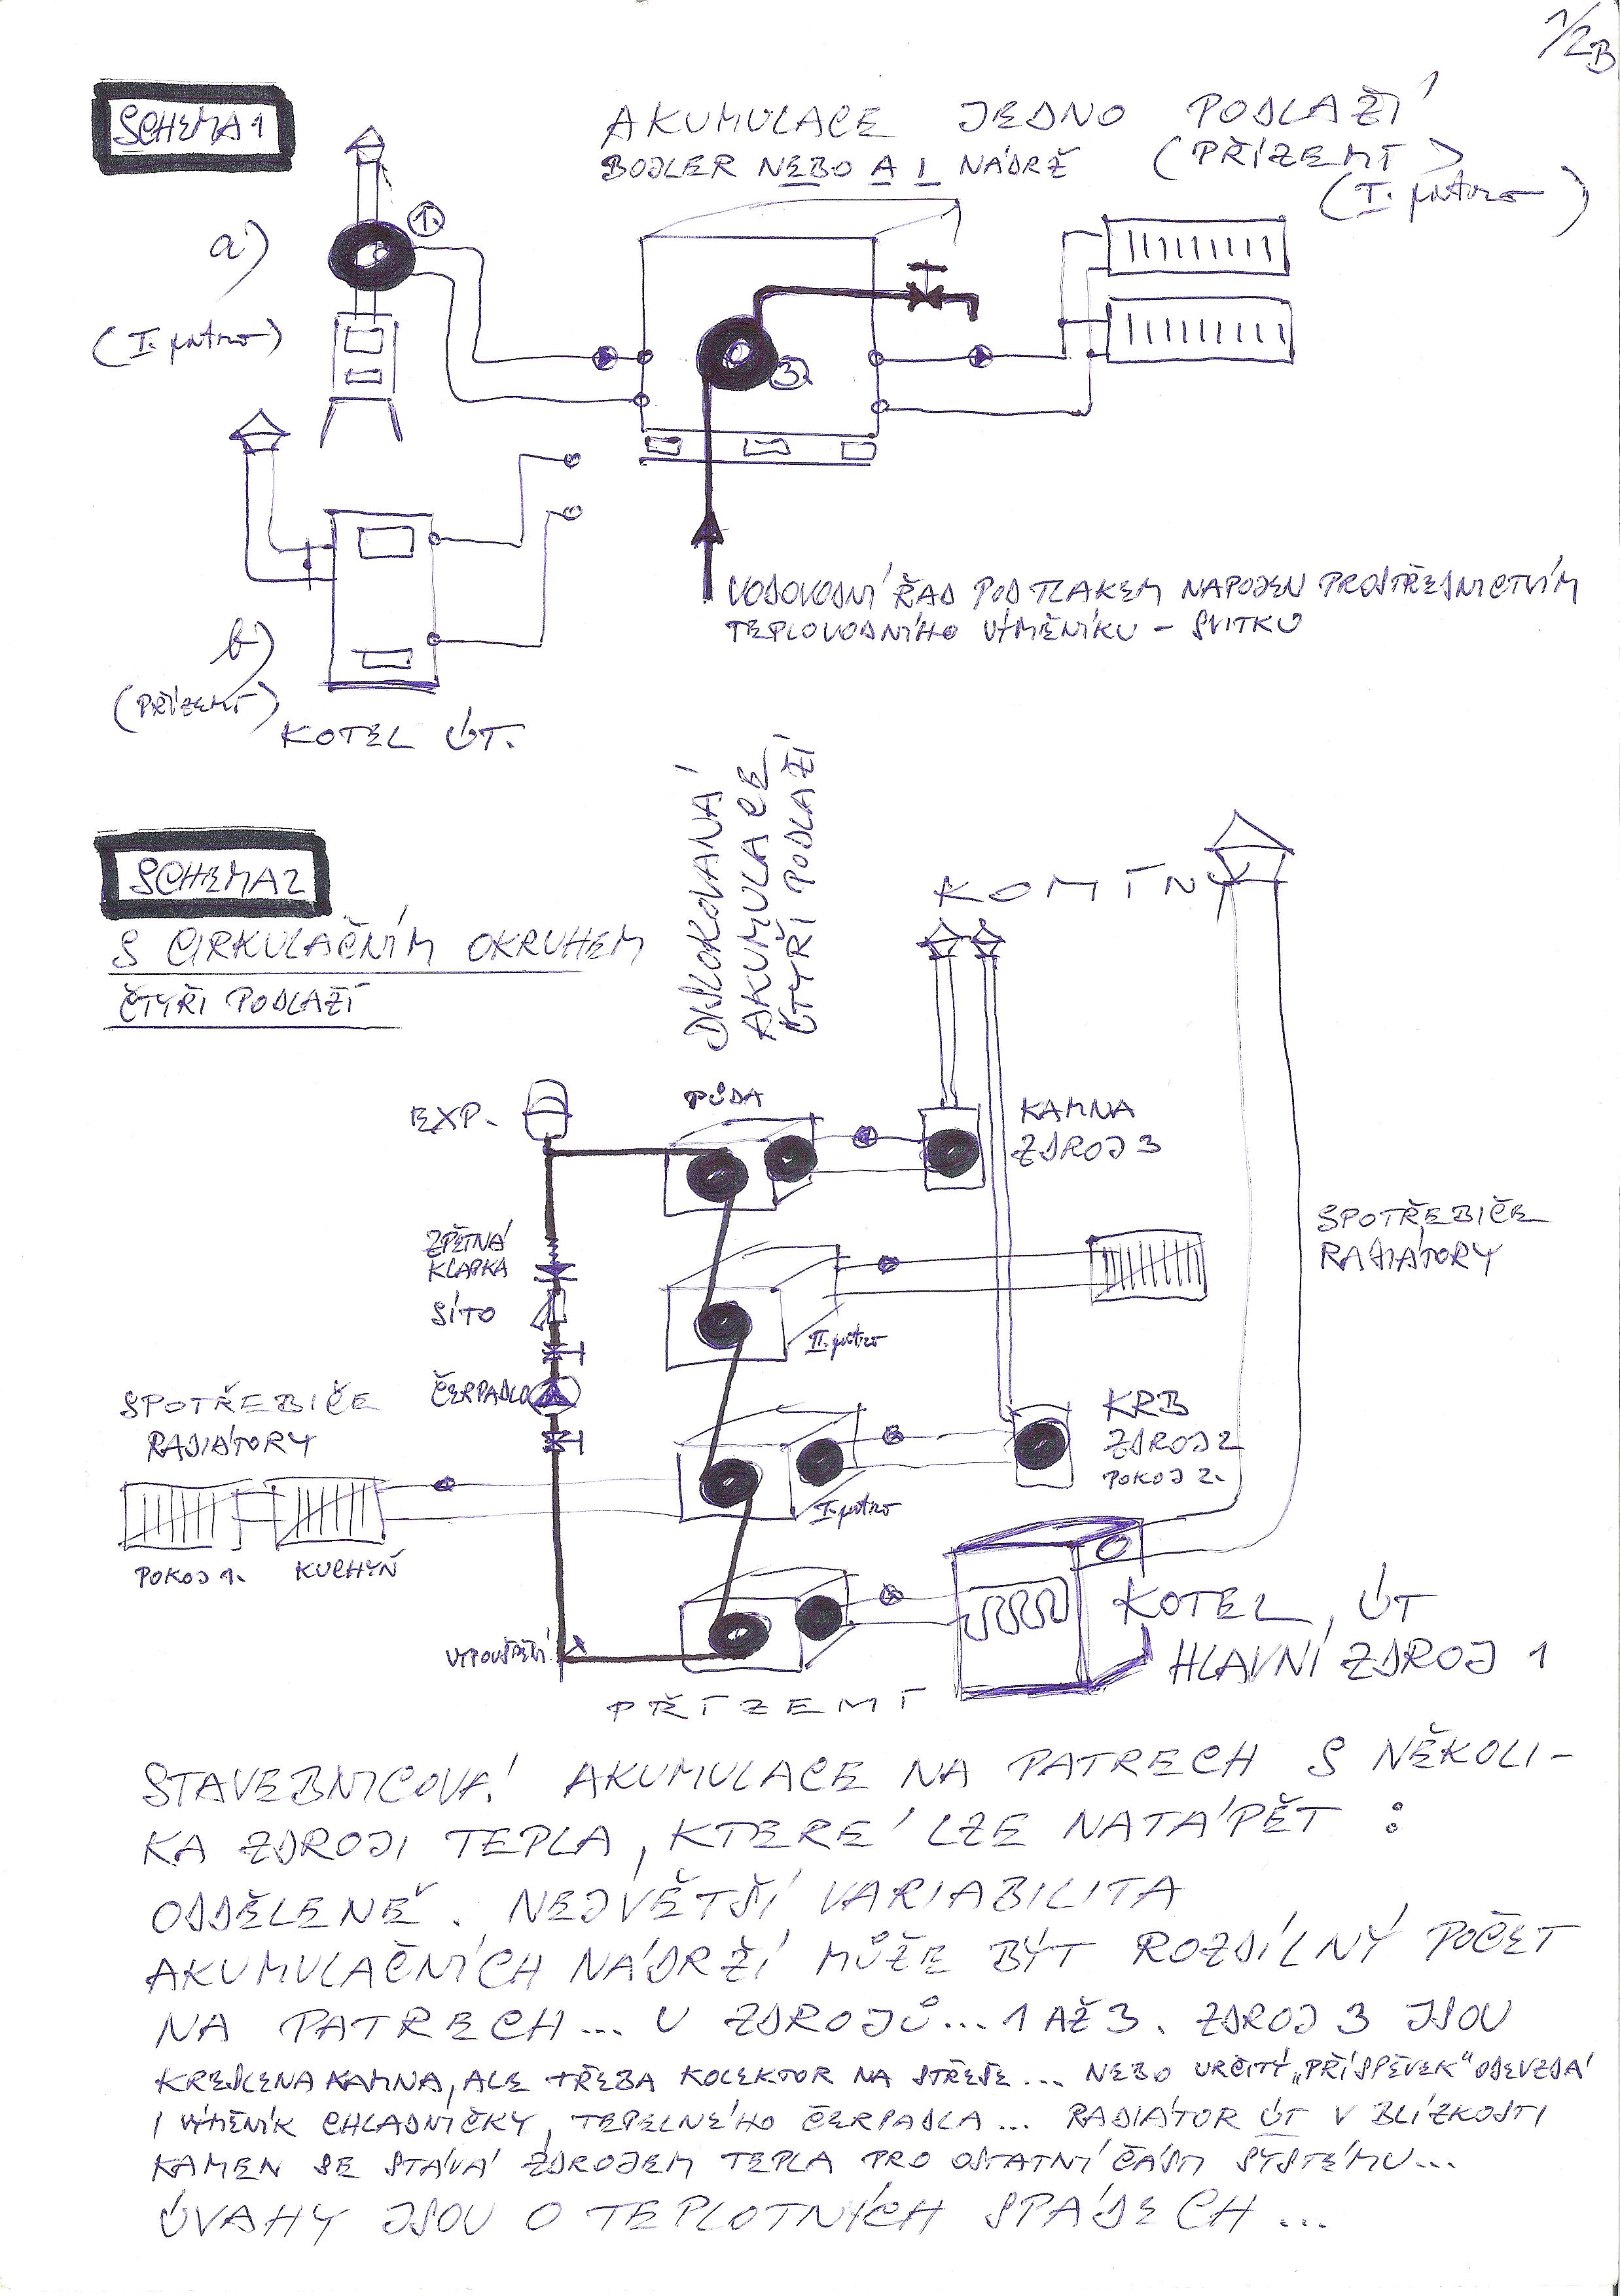 1/2B
SCHEMA 1
AKUMULACE JEDNO PODLAŽÍ
BOJLER NEBO A I NÁDRŽ (PŘÍZEMÍ)
(I. patro)
a)
1.
(I. patro)
3.
VODOVODNÍ ŘAD POD TLAKEM NAPOJEN PROSTŘEDNICTVÍM
TEPLOVODNÍHO VÝMĚNÍKU - SVITKU
b)
(PŘÍZEMÍ)
KOTEL ÚT.
SCHEMA 2
S CIRKULAČNÍM OKRUHEM
ČTYŘI PODLAŽÍ
DISLOKOVANÁ
AKUMULACE
ČTYŘI PODLAŽÍ
KOMÍNY
EXP.
PŮDA
KAMNA
ZDROJ 3
ZPĚTNÁ
KLAPKA
SÍTO
SPOTŘEBIČE
RADIÁTORY
II. patro
ČERPADLO
SPOTŘEBIČE
RADIÁTORY
KRB
ZDROJ 2
POKOJ 2.
I. patro
POKOJ 1.
KUCHYŇ
KOTEL, ÚT
HLAVNÍ ZDROJ 1
VYPOUŠTĚNÍ
PŘÍZEMÍ
STAVEBNICOVÁ! AKUMULACE NA PATRECH S NĚKOLI-
KA ZDROJI TEPLA, KTERÉ LZE NATÁPĚT :
ODDĚLENĚ. NEJVĚTŠÍ VARIABILITA
AKUMULAČNÍCH NÁDRŽÍ MŮŽE BÝT ROZDÍLNÝ POČET
NA PATRECH... U ZDROJŮ... 1 AŽ 3. ZDROJ 3 JSOU
KRESLENA KAMNA, ALE TŘEBA KOLEKTOR NA STŘEŠE... NEBO URČITÝ „PŘÍSPĚVEK" ODEVZDÁ
I VÝMĚNÍK CHLADNIČKY, TEPELNÉHO ČERPADLA... RADIÁTOR ÚT V BLÍZKOSTI
KAMEN SE STÁVÁ ZDROJEM TEPLA PRO OSTATNÍ ČÁSTI SYSTÉMU...
ÚVAHY JSOU O TEPLOTNÍCH SPÁDECH...